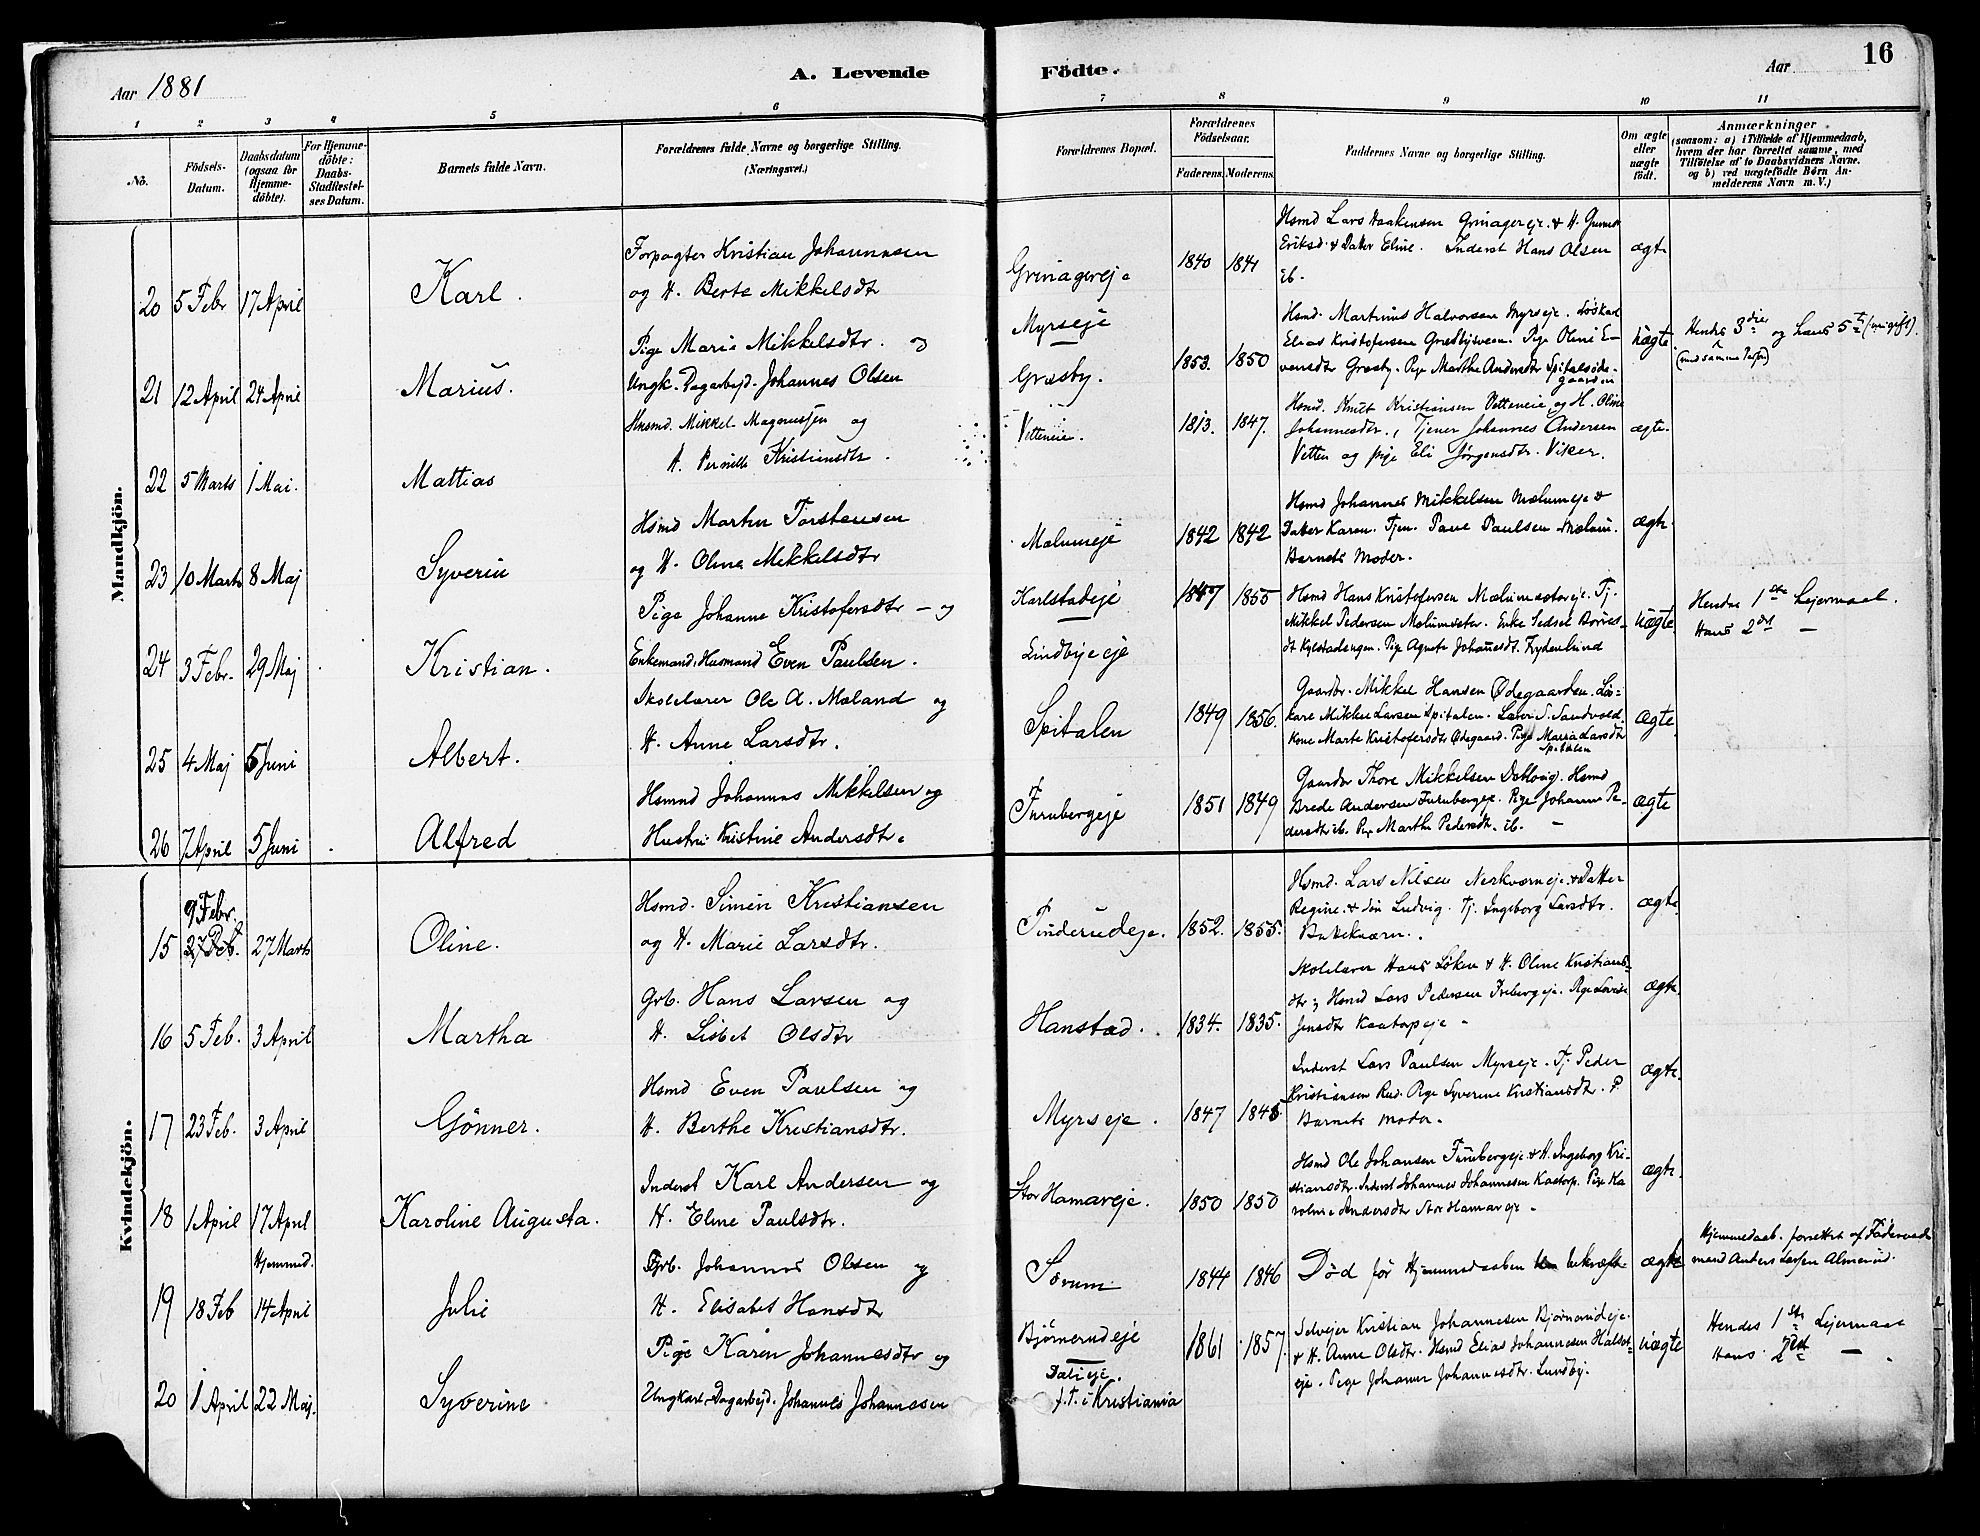 16
Aar 1881
A. Levende Födte.
Aar
1 2 3 4 5 6 7 8 9 10 11
No.
Födsels-
Datum.
Daabsdatum
(ogsaa for
Hjemme-
döbte).
For Hjemme-
döbte:
Daabs-
Stadfæstel-
ses Datum.
Barnets fulde Navn.
Forældrenes fulde Navne og borgerlige Stilling.
(Næringsvei.)
Forældrenes Bopæl.
Forældrenes
Födselsaar.
Faderens. Moderens.
Faddernes Navne og borgerlige Stilling.
Om ægte
eller
uægte
födt.
Anmærkninger
(saasom: a) i Tilfælde af Hjemmedaab,
hvem der har forrettet samme, med
Tilföielse af to Daabsvidners Navne.
og b) ved uægtefödte Börn An-
melderens Navn m. V.)
Mandkjön.
20 5 Febr 17 April Karl.
Forpagter Kristian Johannesen
og H. Berte Mikkelsdtr
Grinagereje 1840 1841
Hsmd Lars Haakensen Grinagereje & H. Gunner
Eriksd. & Datter Eline. Inderst Hans Olsen
ib.
ægte
21 12 April 24 April Marius.
Pige Marie Mikkelsdtr. og
Ungk. Dagarbejd. Johannes Olsen
Myrseje
Græsby. 1853. 1850
Hsmd. Martinus Halvorsen Myrseje. Løskarl
Elias Kristofersen Græsbysveen. Pige Oline E-
vensdtr Græsby. Pige Marthe Andersdtr Spitalsøde-
gaarden
uægte.
Hendes 3die og hans 5te (uægift).
(med samme Person)
22 5 Marts 1 Mai. Mattias
Husmd. Mikkel Magnussen og
H. Pernille Kristiansdtr.
Vetteneie. 1813. 1847.
Hsmd. Knut Kristiansen Vetteneie og H. Oline
Johannesdtr., Tjener Johannes Andersen
Vetten og pige Eli Jørgensdtr. Viker.
ægte.
23 10 Marts 8 Maj Syverin
Hsmd Martin Torstensen
og H. Oline Mikkelsdtr
Mælumeje 1842 1842
Hsmd Johannes Mikkelsen Mælumeje &
Datter Karen. Tjen. Paul Paulsen Mælum.
Barnets Moder.
ægte.
24 3 Febr. 29 Maj Kristian.
Pige Johanne Kristofersdtr — og
Enkemand, Husmand Even Paulsen.
Karlstadeje
Lindbyeeje 1847 1855
Hsmd Hans Kristofersen Mælumsætereje. Tj.
Mikkel Pedersen Mælumsæter. Enke Sedsel Børres-
dt Kylstadengen. Pige Agnete Johannesdt. Frydenlund
uægte.
Hendes 1ste Lejermaal.
Hans 2det —
25 4 Maj 5 Juni Albert.
Skolelærer Ole A. Mæland og
H. Anne Larsdtr.
Spitalen 1849 1856.
Gaardbr. Mikkel Hansen Ødegaarden. Løs-
karl Mikkel Larsen Spitalen. Lærer S. Sandvold
Kone Marte Kristofersdtr Ødegaard. Pige Maria Larsdtr
Spitalen
ægte.
26 7 April 5 Juni Alfred
Hsmnd Johannes Mikkelsen og
Hustru Kristine Andersdtr.
Furubergeje 1851 1849
Gaardbr Thore Mikkelsen Dobloug. Hsmd
Brede Andersen Furubergeje. Pige Johanne Pe-
dersdtr ib. Pige Marthe Pedersdtr. ib. —
ægte
Kvindekjön.
15 9 Febr. 27 Marts Oline.
Hsmd. Simen Kristiansen
og H. Marie Larsdtr.
Finderudeje. 1852. 1855.
Hsmd. Lars Nilsen Nerkværneje. & Datter
Regine. & Søn Ludvig. Tj. Ingeborg Larsdtr.
Bakekværn.
ægte.
16 5 Feb. 3 April Martha
Grb. Hans Larsen og
H. Lisbet Olsdtr
Hanstad. 1834. 1835.
Skolelærer Hans Løken & H. Oline Kristians-
dtr; Hsmd Lars Pedersen Frebergeje. Pige Lovise
Jensdtr Kaatorpeje.
ægte.
17 23 Feb. 3 April Gønner.
Hsmd Even Paulsen og
H. Berthe Kristiansdtr.
Myrseje. 1847
Inderst Lars Paulsen Myrseje. Tj. Peder
Kristiansen Rud. Pige Syverine Kristiansdtr.
Barnets Moder.
ægte.
18 1 April 17 April Karoline Augusta.
Inderst Karl Andersen og
H. Eline Paulsdtr.
Stor Hamareje. 1850 1850
Hsmd Ole Johansen Furubergeje & H. Ingeborg Kri-
stiansdtr. Inderst Johannes Johannesen Kaatorp. Pige Ka
roline Andersdtr Stor Hamareje.
ægte.
19 18 Feb Hjemmed. 14 April Julie
Grb. Johannes Olsen og
H. Elisabet Hansdtr
Sørum. 1844 1846
Død før Hjemmedaaben bekræft.
ægte
Hjemmedaab. forrettet af Føderaads
mand Anders Larsen Almerud.
20 1 April 22 Maj. Syverine
Pige Karen Johannesdtr og
Ungkarl, Dagarbejd. Johannes Johannessen
Bjørnerudeje
Daleje.
f. T. i Kristiania
1861 1857.
Selvejer Kristian Johannesen Bjørnerudeje.
& H. Anne Olsdtr. Hsmd Elias Johannesen Halset-
eje. Pige Johanne Johannesdtr. Lundby.
uægte
Hendes 1ste Lejermaal
Hans 2det —